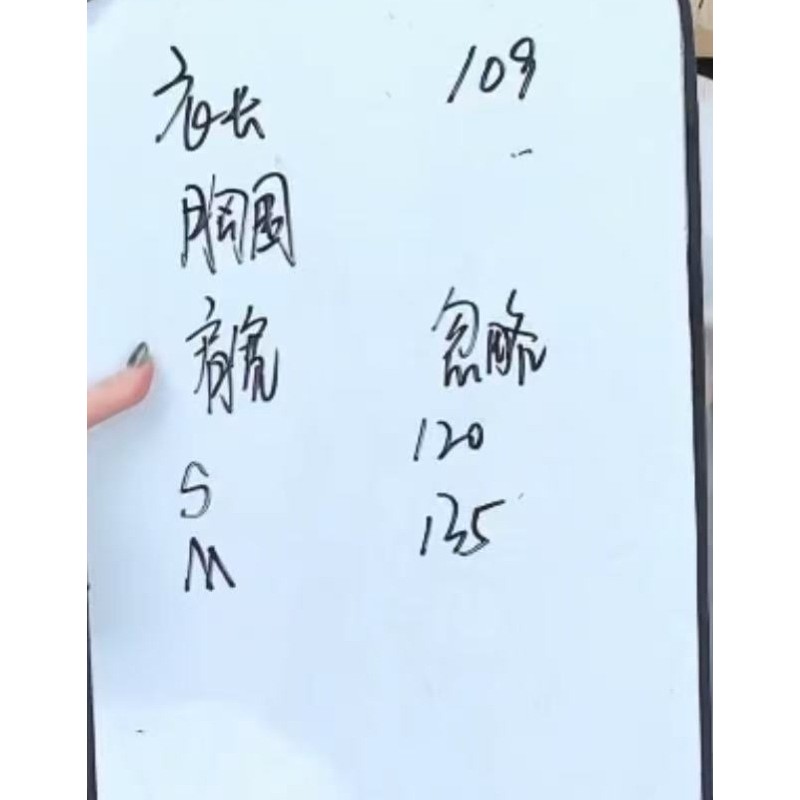 衣长 109
胸围
肩宽 忽略
S 120
M 135